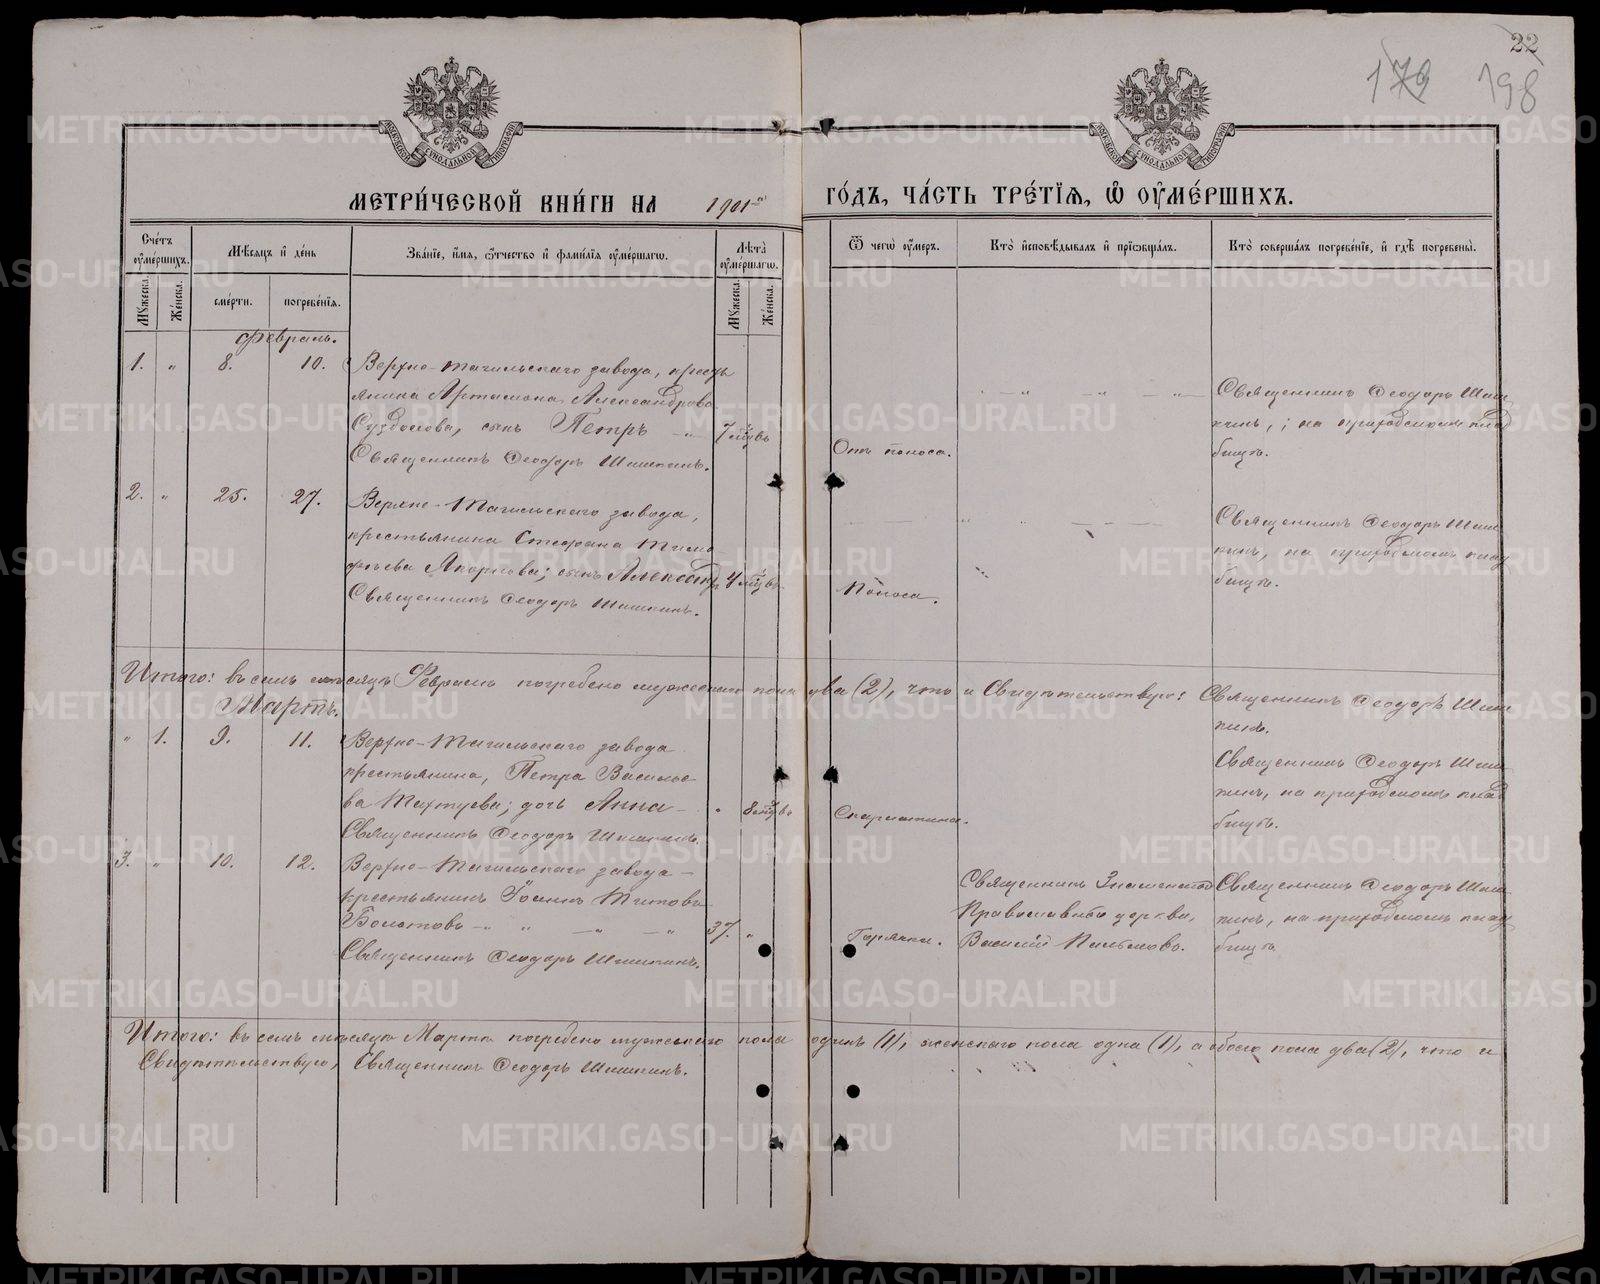 22
179 198
МОСКОВСКОЙ СѴНОДАЛЬНОЙ ТИПОГРАФІИ
МОСКОВСКОЙ СѴНОДАЛЬНОЙ ТИПОГРАФІИ
МЕТРИ́ЧЕСКОЙ КНИ́ГИ НА 1901-й ГО́ДЪ, ЧА́СТЬ ТРЕ́ТІѦ, Ѡ҆ ОУ҆МЕ́РШИХЪ.
Сче́тъ оу҆ме́ршихъ.
Мѣ́сяцъ и҆ де́нь
Зва́ніе, и҆́мѧ, ѻ҆́тчество и҆ фами́лїѧ оу҆ме́ршагѡ.
Лѣ́та оу҆ме́ршагѡ.
Ѿ чегѡ̀ оу҆́меръ.
Кто̀ и҆сповѣ́дывалъ и҆ прїѡбща́лъ.
Кто̀ соверша́лъ погребе́нїе, и҆ гдѣ̀ погребены̀.
Мꙋ́жеска.
Же́нска.
сме́рти.
погребе́нїѧ.
Мꙋ́жеска.
Же́нска.
Февраль.
1. „ 8. 10. Верхне-Тагильскаго завода, кресть
янина Артамона Александрова
Суздолова, сынъ Петръ — 7 мцвъ
Священникъ Ѳеодоръ Шишкинъ.
Отъ поноса.
Священникъ Ѳеодоръ Шиш
кинъ, на приходскомъ клад
бищѣ.
2. „ 25. 27. Верхне-Тагильскаго завода,
крестьянина Стефана Тимо
феева сынъ Александръ 4 мцвъ
Священникъ Ѳеодоръ Шишкинъ.
Поноса.
Священникъ Ѳеодоръ Шиш
кинъ, на приходскомъ клад
бищѣ.
Итого: въ семъ мѣсяцѣ Февралѣ погребено мужескаго пола два (2), что и свидѣтельствую: Священникъ Ѳеодоръ Шиш
кинъ.
Мартъ.
„ 1. 9. 11. Верхне-Тагильскаго завода
крестьянина, Петра Василье
ва Тахтуева; дочь Анна — „ 8 мцвъ
Священникъ Ѳеодоръ Шишкинъ.
Скарлатина.
Священникъ Ѳеодоръ Шиш
кинъ, на приходскомъ клад
бищѣ.
3. „ 10. 12. Верхне-Тагильскаго завода —
крестьянинъ Іоаннъ Титовъ
Болотовъ — „ — „ — „ 37. „
Священникъ Ѳеодоръ Шишкинъ.
Горячки.
Священникъ Знаменской
Православной церкви,
Василій
Священникъ Ѳеодоръ Шиш
кинъ, на приходскомъ клад
бищѣ
Итого: въ семъ мѣсяцѣ Мартѣ погребено мужескаго пола одинъ (1), женскаго пола одна (1), а обоего пола два (2), что и
Свидѣтельствую, Священникъ Ѳеодоръ Шишкинъ.
METRIKI.GASO-URAL.RU